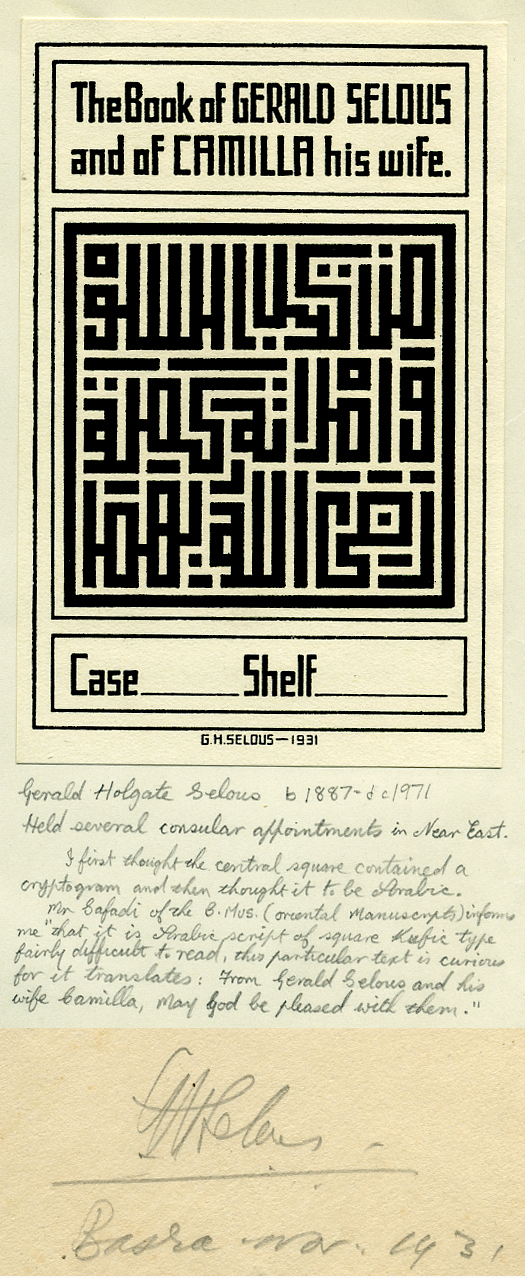 The Book of GERALD SELOUS
and of CAMILLA his wife.
من
وامراته كميلة
رضى الله
Case Shelf
G.H.SELOUS—1931
Gerald Holgate Selous b 1887- d c 1971
Held several consular appointments in Near East.
I first thought the central square contained a
cryptogram and then thought it to be Arabic.
"Mr Safadi of the B. Mus. (oriental Manuscripts) informs
me that it is Arabic script of square Kufic type
fairly difficult to read, this particular text is curious
for it translates: From Gerald Selous and his
wife Camilla, may God be pleased with them."
GHSelous -
Basra Nov. 1931